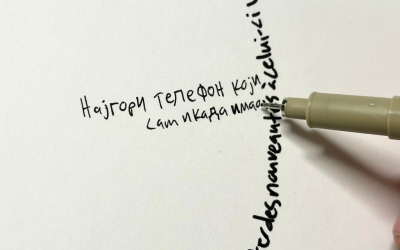 Најгори телефон који
сам икада имао
des nouveautés à celui-ci